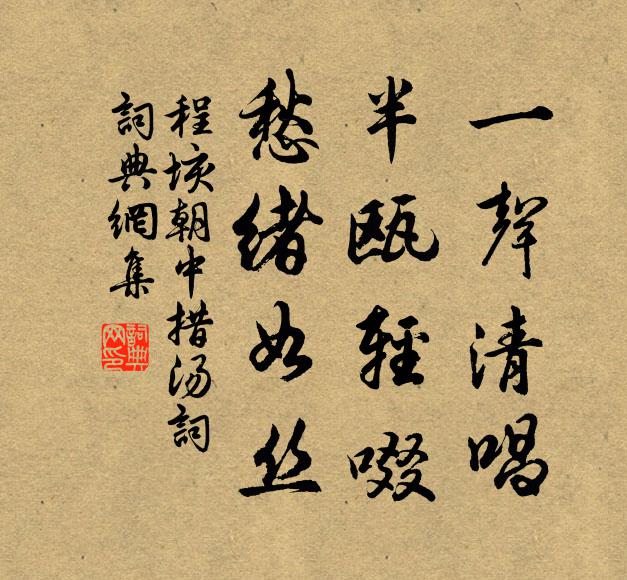 一聲清唱
半瓯輕啜
愁緒如丝
程垓朝中措汤詞
詞典網集
詞典网印